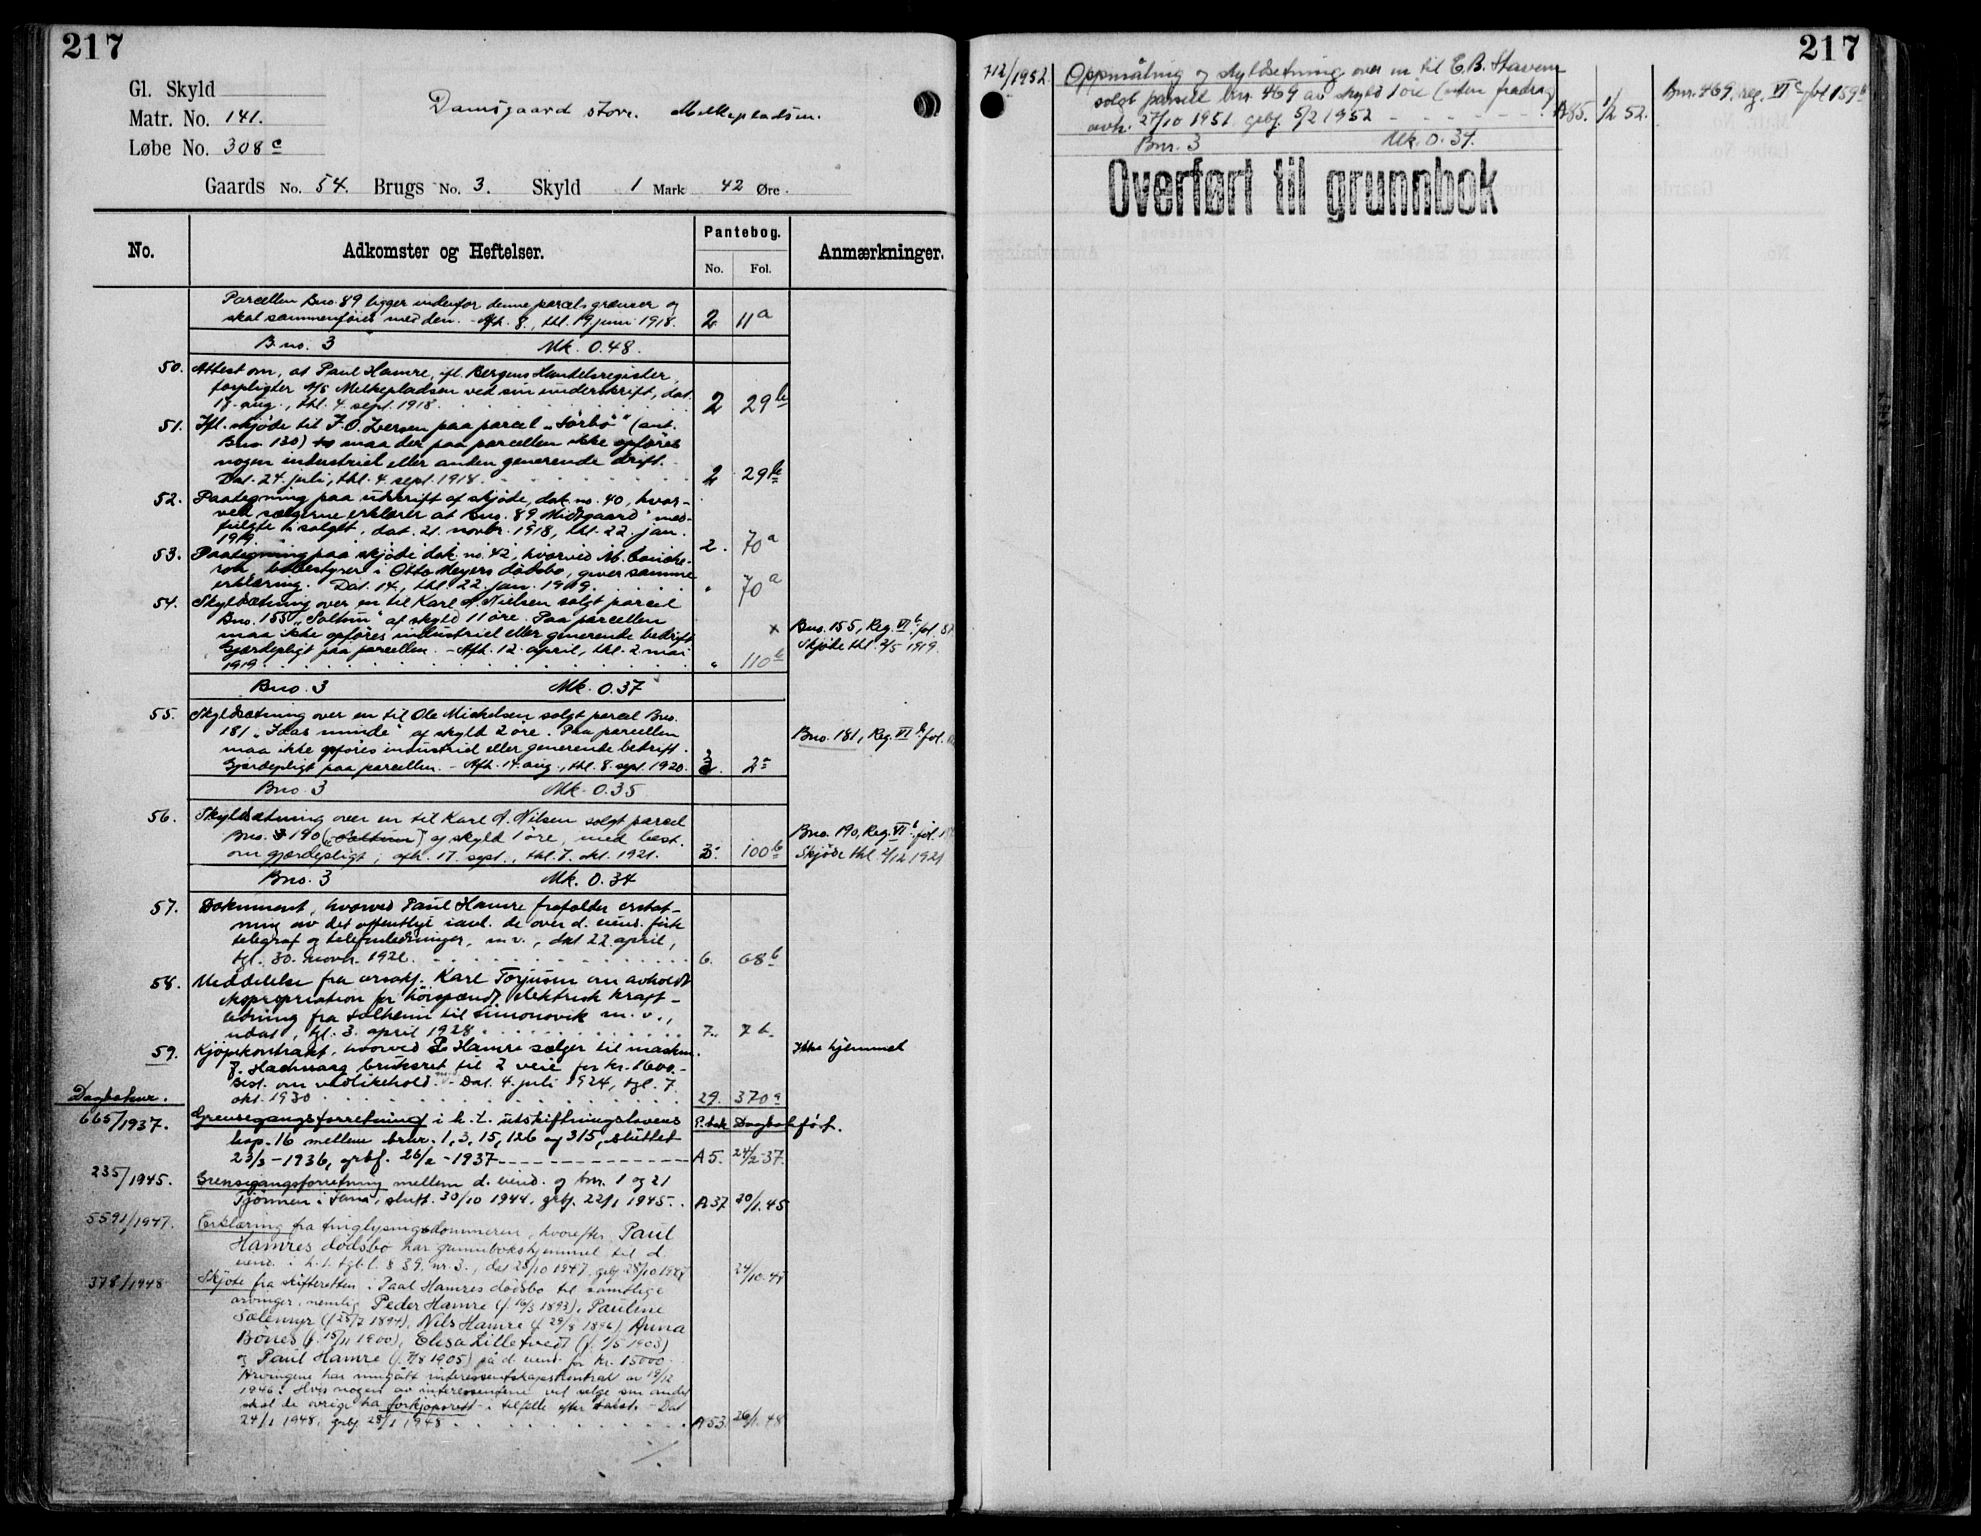 217
Gl. Skyld
Matr. No. 141.
Løbe No. 308 c
Damsgaard store. Melkepladsen.
Gaards No. 54. Brugs No. 3. Skyld 1 Mark 42 Øre.
No. Adkomster og Heftelser. Pantebog. No. Fol. Anmærkninger.
Parcellen Bno. 89 ligger indenfor denne parcels grænser og
skal sammenføies med den. - Afh. 8., thl. 19 juni 1918. 2 11a
B.no. 3 Mk. 0.48.
50. Attest om, at Paul Hamre, ifl. Bergens Handelsregister,
forpligter A/S Melkepladsen ved sin underskrift, dat.
17. aug., thl. 4. sept. 1918. 2 29b
51. Ifl. skjøde til J. O. Iversen paa parcel „Sørbø" (ant.
Bno. 130) maa der paa parcellen ikke opføres
nogen industriel eller anden generende drift.
Dat. 24. juli, thl. 4. sept. 1918. 2 29b
52. Paategning paa utskrift af skjøde, dok. no. 40, hvor-
ved sælgerne erklærer at Bno. 89 „Midtgaard" med-
fulgte i salget, dat. 21. novbr. 1918, thl. 22. jan.
1919. 2. 70a
53. Paategning paa skjøde dok. no. 42, hvorved
bobestyrer i Otto Meyers dødsbo, giver samme
erklæring. Dat. 14., thl. 22. jan. 1919. " 70a
54. Skyldsætning over en til Karl A. Nielsen solgt parcel
Bno. 155 „Soltun" af skyld 11 øre. Paa parcellen
maa ikke opføres industriel eller generende bedrift
Gjærdepligt paa parcellen. - Afh. 12. april, thl. 2. mai
1919 " 110b
Bno. 155, Reg. VI b. fol.
Skjøde thl. 2/5 1919.
Bno. 3 Mk. 0.37
55. Skyldsætning over en til Ole Mickelsen solgt parcel Bno.
181 „Idas minde" af skyld 2 øre. Paa parcellen
maa ikke opføres industriel eller generende bedrift.
Gjærdepligt paa parcellen. - Afh. 14. aug., thl. 8. sept. 1920. 3. 2a
Bno. 181, Reg. VI b fol.
Bno. 3 Mk. 0.35
56. Skyldsætning over en til Karl A. Nilsen solgt parcel
Bno. 190 („Soltun") af skyld 1 øre, med best.
om gjærdepligt, afh. 17. sept., thl. 7. okt. 1921. 3. 100b
Bno. 190, Reg. VI b. fol.
Skjøde thl. 2/12 1921
Bno. 3 Mk. 0.34
57. Dokument, hvorved Paul Hamre frafalder erstat-
ning av det offentlige i anl. de over d. eiend. førte
telegraf og telefonledninger, m.v., dat 22. april,
tgl. 30. novbr. 1926. 6. 68b
58. Meddelelse fra orsakf. Karl Torjusen om avholdt
ekspropriation for høispændt elektrisk kraft-
ledning fra Solheim til Simonsvik m.v.,
udat., tgl. 3. april 1928. 7. 7b
59. Kjøpekontrakt, hvorved P. Hamre sælger til maskin.
bruksret til 2 veie for kr. 1600.-
Best. om vedlikehold. - Dat. 4. juli 1924, tgl. 7.
okt. 1930 29. 370a
Ikke hjemmel
Dagboknr. P.bok Dagbokført.
665/1937. Grensegangsforretning i h.t. utskiftningslovens
kap. 16 mellem bnr. 1, 3, 15, 126 og 315, sluttet
23/3 - 1936, grbf. 26/2 - 1937 A5. 24/2-37.
235/1945. Grensegangsforretning mellem d. eiend. og bnr. 1 og 21
Tjønnen i sms, slutt. 30/10 1944, grbf. 22/1 1945. A37 20/1.45
5591/1947. Erklæring fra tinglysingsdommeren, hvorefter Paul
Hamres dødsbo har grunnbokshjemmel til d.
eiend. i h.t. tgl.l. § 39, nr. 3., dat 28/10 1947, grbf 28/10 1947 24/10.47
378/1948 Skjøte fra skifteretten i Paul Hamres dødsbo til samtlige
arvinger, nemlig Peder Hamre (f. 10/3 1893), Pauline
Sælemyr (f 25/7 1894), Nils Hamre (f 29/8 1896), Anna
Bønes (f. 15/11 1900), Elisa Lilletvedt (f. 7/5 1903)
og Paul Hamre (f. 7/8 1905) på d. eiend. for kr. 15000.-
Arvingene har inngått interessentskapskontrakt av 19/12
1946. Hvis nogen av interessentene vil selge sin andel
skal de øvrige ha forkjøpsrett i tilfelle efter takst. - Dat
24/1 1948, grbf 28/1 1948 A53. 26/1.48
217
712/1952. Oppmåling og skyldsetning over en til E. B. Stavem
solgt parsell bnr. 469 av skyld 1 øre (uten fradrag)
avh. 27/10 1951, grbf. 5/2 1952 A85. 1/2 52.
Bnr. 469, reg. VI c fol 159b
Bnr. 3 Mk. 0.34.
Overført til grunnbok